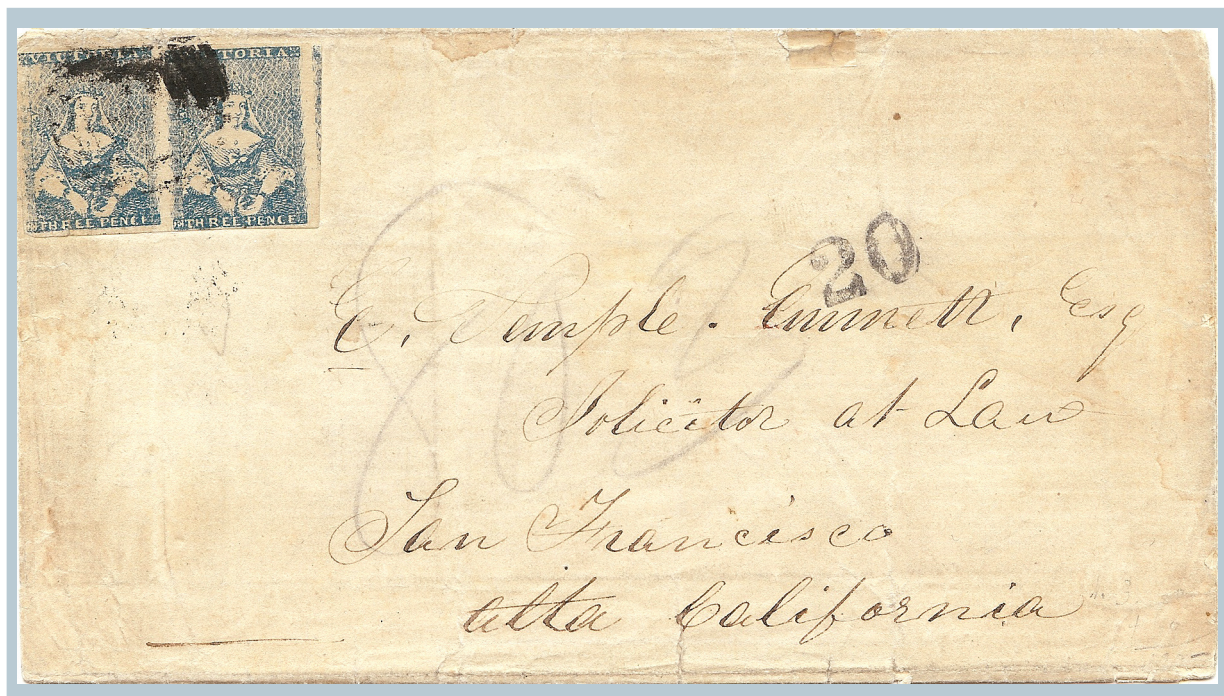 VICTORIA VICTORIA
THREE PENCE THREE PENCE
20
E. Temple. Emmett, Esq
Solicitor at Law
San Francisco
alta California